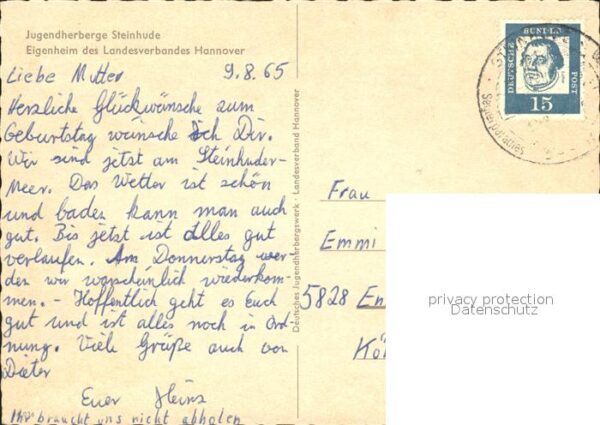 Jugendherberge Steinhude
Eigenheim des Landesverbandes Hannover
Liebe Mutter 9.8.65
Herzliche Glückwünsche zum
Geburtstag wünsche ich Dir.
Wir sind jetzt am Steinhuder-
Meer. Das Wetter ist schön
und baden kann man auch
gut. Bis jetzt ist alles gut
verlaufen. Am Donnerstag wer-
den wir warscheinlich wiederkom-
men. - Hoffentlich geht es Euch
gut und ist alles noch in Ord-
nung. Viele Grüße auch von
Dieter
Euer Heinz
Ihr braucht uns nicht abholen
Deutsches Jugendherbergswerk · Landesverband Hannover
DEUTSCHE BUNDES POST
15
Frau
Emmi
5828 En
Kö
privacy protection
Datenschutz